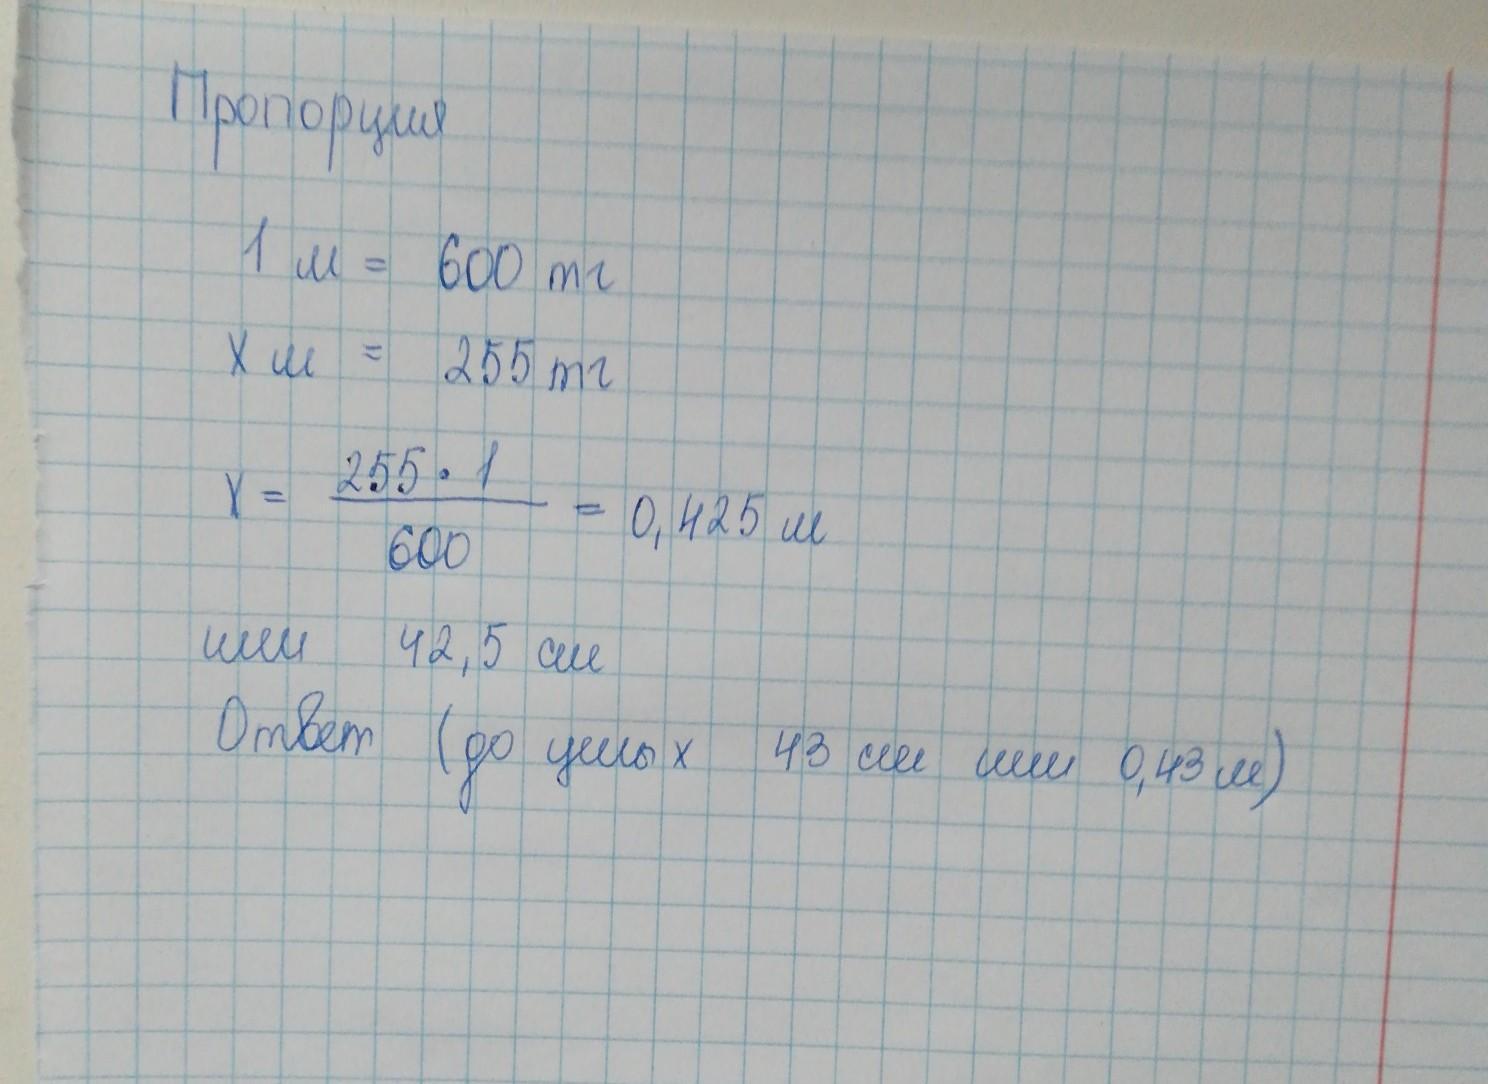 Пропорция
1 м = 600 тг
х м = 255 тг
х = 255 · 1 / 600 = 0,425 м
или 42,5 см
Ответ (до целых 43 см или 0,43 м)